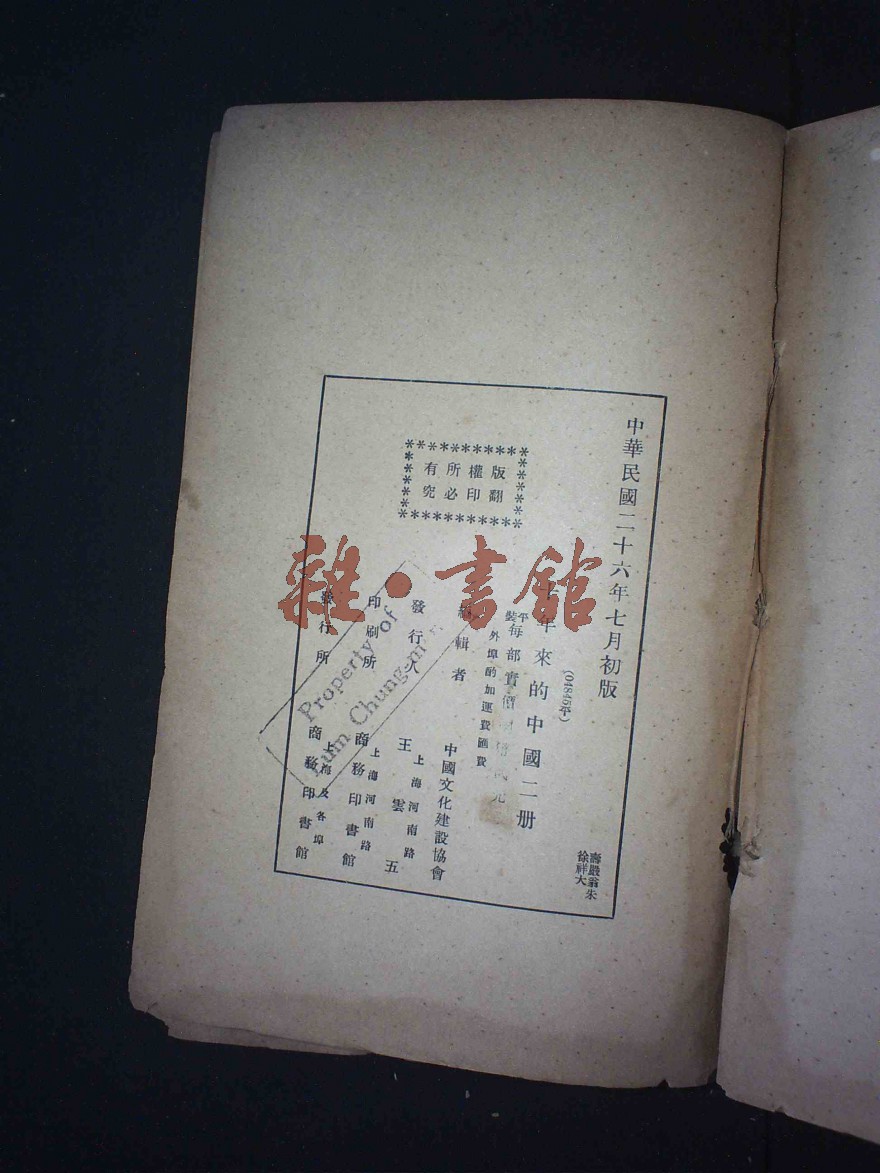 中華民國二十六年七月初版
(04845平)
年來的中國二册
平裝每部實價
外埠酌加運費匯費
輯者
中國文化建設協會
發行人
王雲五
上海河南路
印刷所
商務印書館
上海河南路
發行所
商務印書館
上海及各埠
版權所有
翻印必究
徐祥大
朱
雜·書館
Property of
Lum Chung